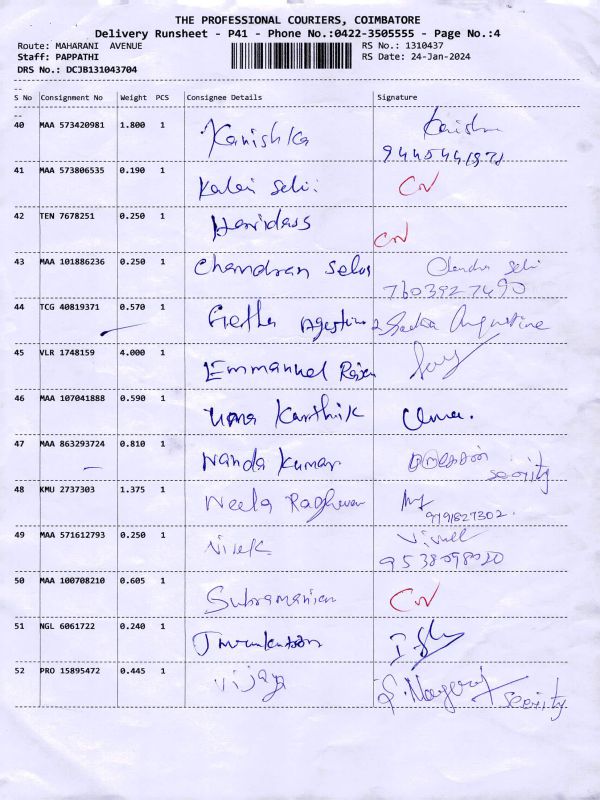 THE PROFESSIONAL COURIERS, COIMBATORE
Delivery Runsheet - P41 - Phone No.:0422-3505555 - Page No.:4
Route: MAHARANI AVENUE RS No.: 1310437
Staff: PAPPATHI RS Date: 24-Jan-2024
DRS No.: DCJB131043704
S No Consignment No Weight PCS Consignee Details Signature
40 MAA 573420981 1.800 1 Kanishka
41 MAA 573806535 0.190 1 Kalai Selvi
42 TEN 7678251 0.250 1 Haridass
43 MAA 101886236 0.250 1 Chandran Selvi Chandra Selvi
7603927490
44 TCG 40819371 0.570 1 Geetha Agestine Geetha Augustine
45 VLR 1748159 4.000 1 Emmanuel Rajan
46 MAA 107041888 0.590 1 Uma Karthik Uma.
47 MAA 863293724 0.810 1 Nanda Kumar
seority
48 KMU 2737303 1.375 1 Neela Raghavan
9791827302.
49 MAA 571612793 0.250 1 Vivek
9538098020
50 MAA 100708210 0.605 1 Subramanian
51 NGL 6061722 0.240 1
52 PRO 15895472 0.445 1 Vijaya S. Nagaraj seority